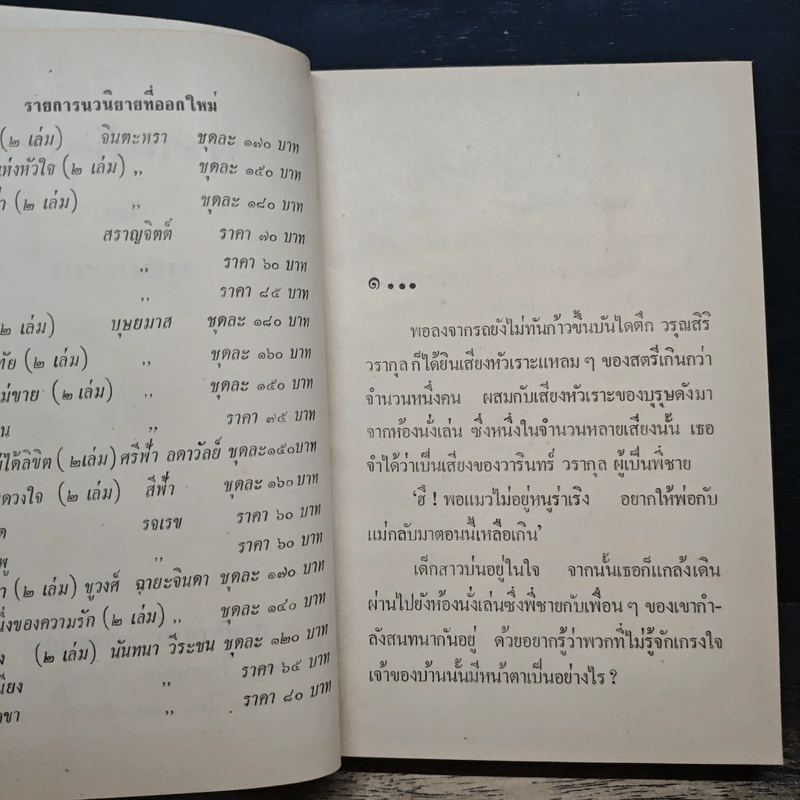 รายการนวนิยายที่ออกใหม่
(๒ เล่ม) จินตะหรา ชุดละ ๑๗๐ บาท
แห่งหัวใจ (๒ เล่ม) ,, ชุดละ ๑๕๐ บาท
(๒ เล่ม) ,, ชุดละ ๑๘๐ บาท
สราญจิตต์ ราคา ๗๐ บาท
,, ราคา ๖๐ บาท
,, ราคา ๘๕ บาท
๒ เล่ม) บุษยมาส ชุดละ ๑๘๐ บาท
ทัย (๒ เล่ม) ,, ชุดละ ๑๖๐ บาท
ม่ขาย (๒ เล่ม) ,, ชุดละ ๑๕๐ บาท
น ,, ราคา ๗๕ บาท
ได้ลิขิต (๒เล่ม) ศรีฟ้า ลดาวัลย์ ชุดละ๑๕๐ บาท
ดวงใจ (๒ เล่ม) สีฟ้า ชุดละ ๑๖๐ บาท
ด รจเรข ราคา ๖๐ บาท
พู ,, ราคา ๖๐ บาท
า (๒ เล่ม) ชูวงศ์ ฉายะจินดา ชุดละ ๑๗๐ บาท
นึ่งของความรัก (๒ เล่ม) ,, ชุดละ ๑๔๐ บาท
ง (๒ เล่ม) นันทนา วีระชน ชุดละ ๑๒๐ บาท
นียง ,, ราคา ๖๕ บาท
ขา ,, ราคา ๘๐ บาท
๑ ...
พอลงจากรถยังไม่ทันก้าวขึ้นบันไดตึก วรุณสิริ
วรากุล ก็ได้ยินเสียงหัวเราะแหลม ๆ ของสตรีเกินกว่า
จำนวนหนึ่งคน ผสมกับเสียงหัวเราะของบุรุษดังมา
จากห้องนั่งเล่น ซึ่งหนึ่งในจำนวนหลายเสียงนั้น เธอ
จำได้ว่าเป็นเสียงของวารินทร์ วรากุล ผู้เป็นพี่ชาย
‘ฮึ ! พอแมวไม่อยู่หนูร่าเริง อยากให้พ่อกับ
แม่กลับมาตอนนี้เหลือเกิน’
เด็กสาวบ่นอยู่ในใจ จากนั้นเธอก็แกล้งเดิน
ผ่านไปยังห้องนั่งเล่นซึ่งพี่ชายกับเพื่อน ๆ ของเขากำ-
ลังสนทนากันอยู่ ด้วยอยากรู้ว่าพวกที่ไม่รู้จักเกรงใจ
เจ้าของบ้านนั้นมีหน้าตาเป็นอย่างไร ?